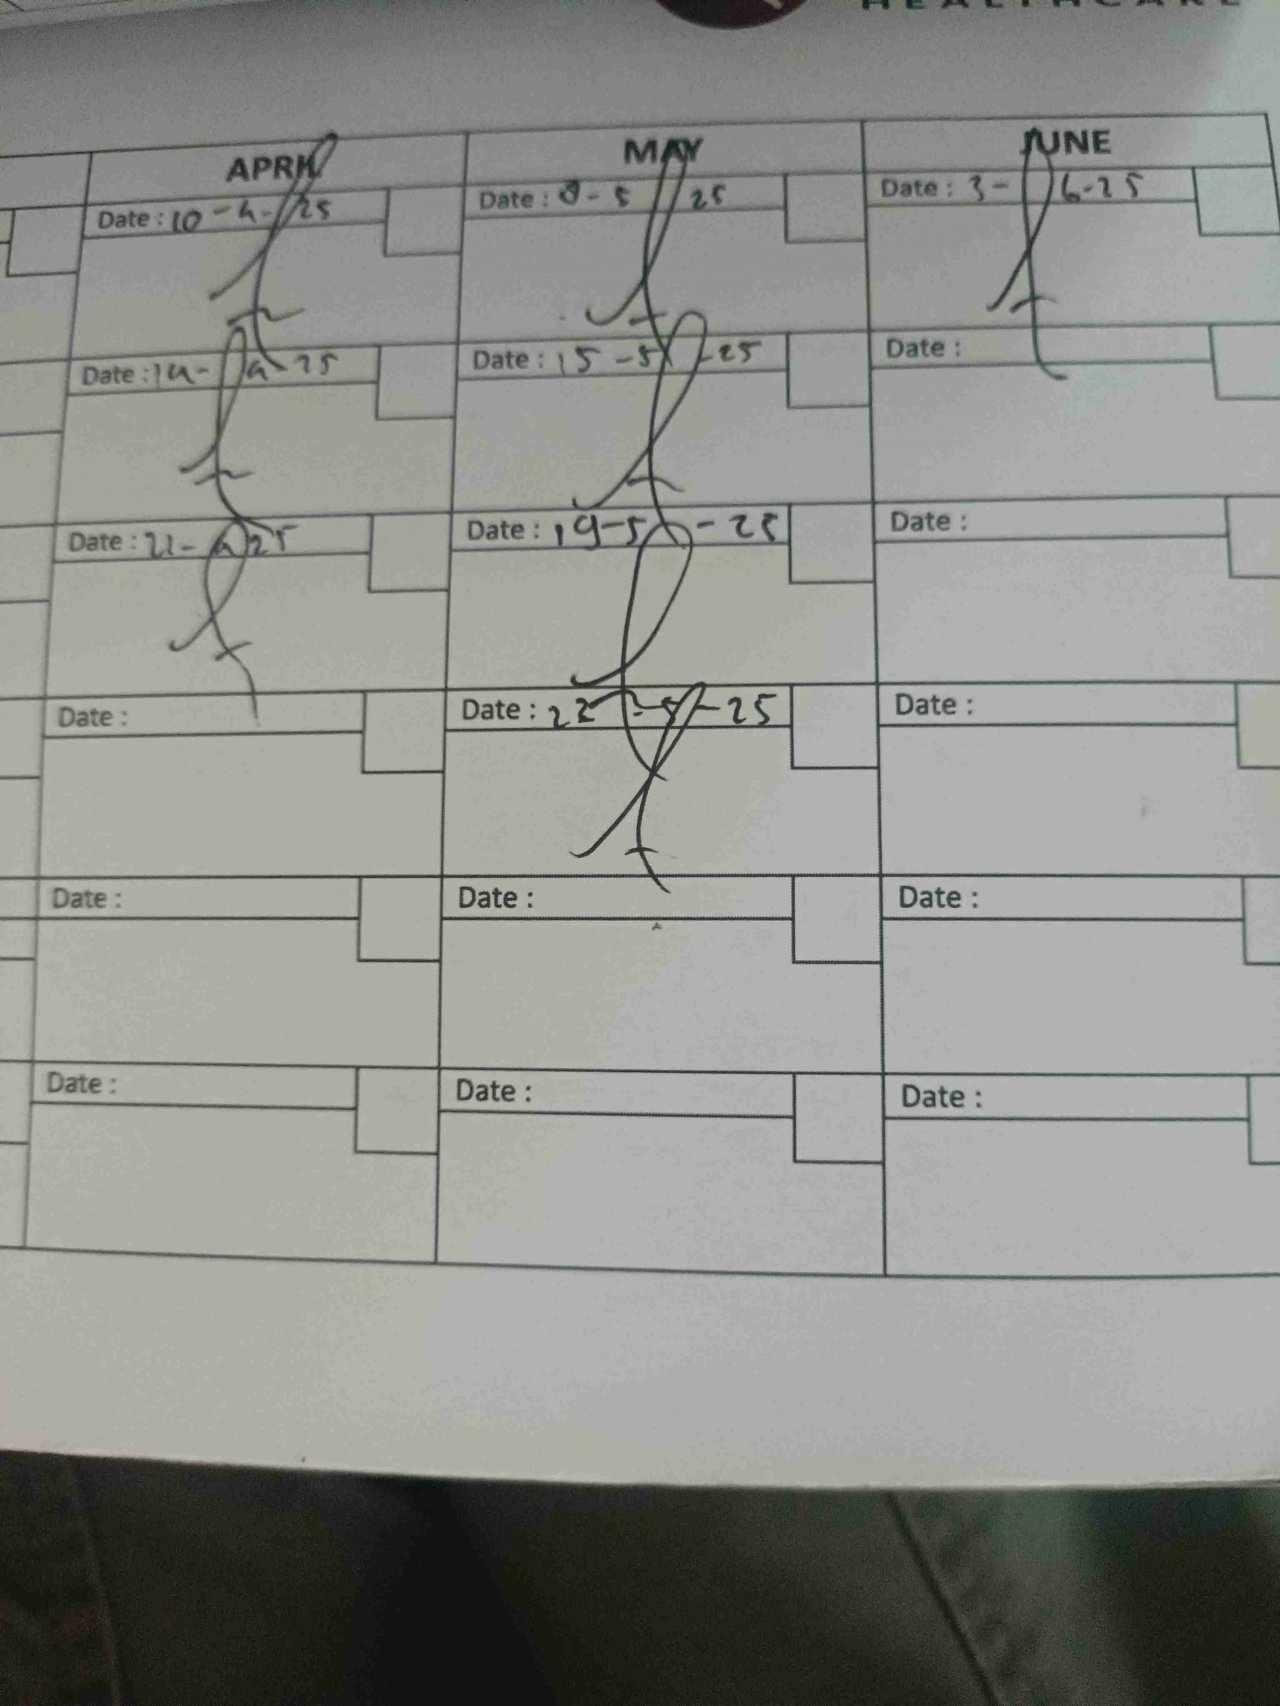 HEALTHCARE
APRIL MAY JUNE
Date : 10-4-25 Date : 8-5 25 Date : 3-6-25
Date : 14-4-25 Date : 15-5-25 Date :
Date : 21-4 25 Date : 19-5-25 Date :
Date : Date : 22-5-25 Date :
Date : Date : Date :
Date : Date : Date :